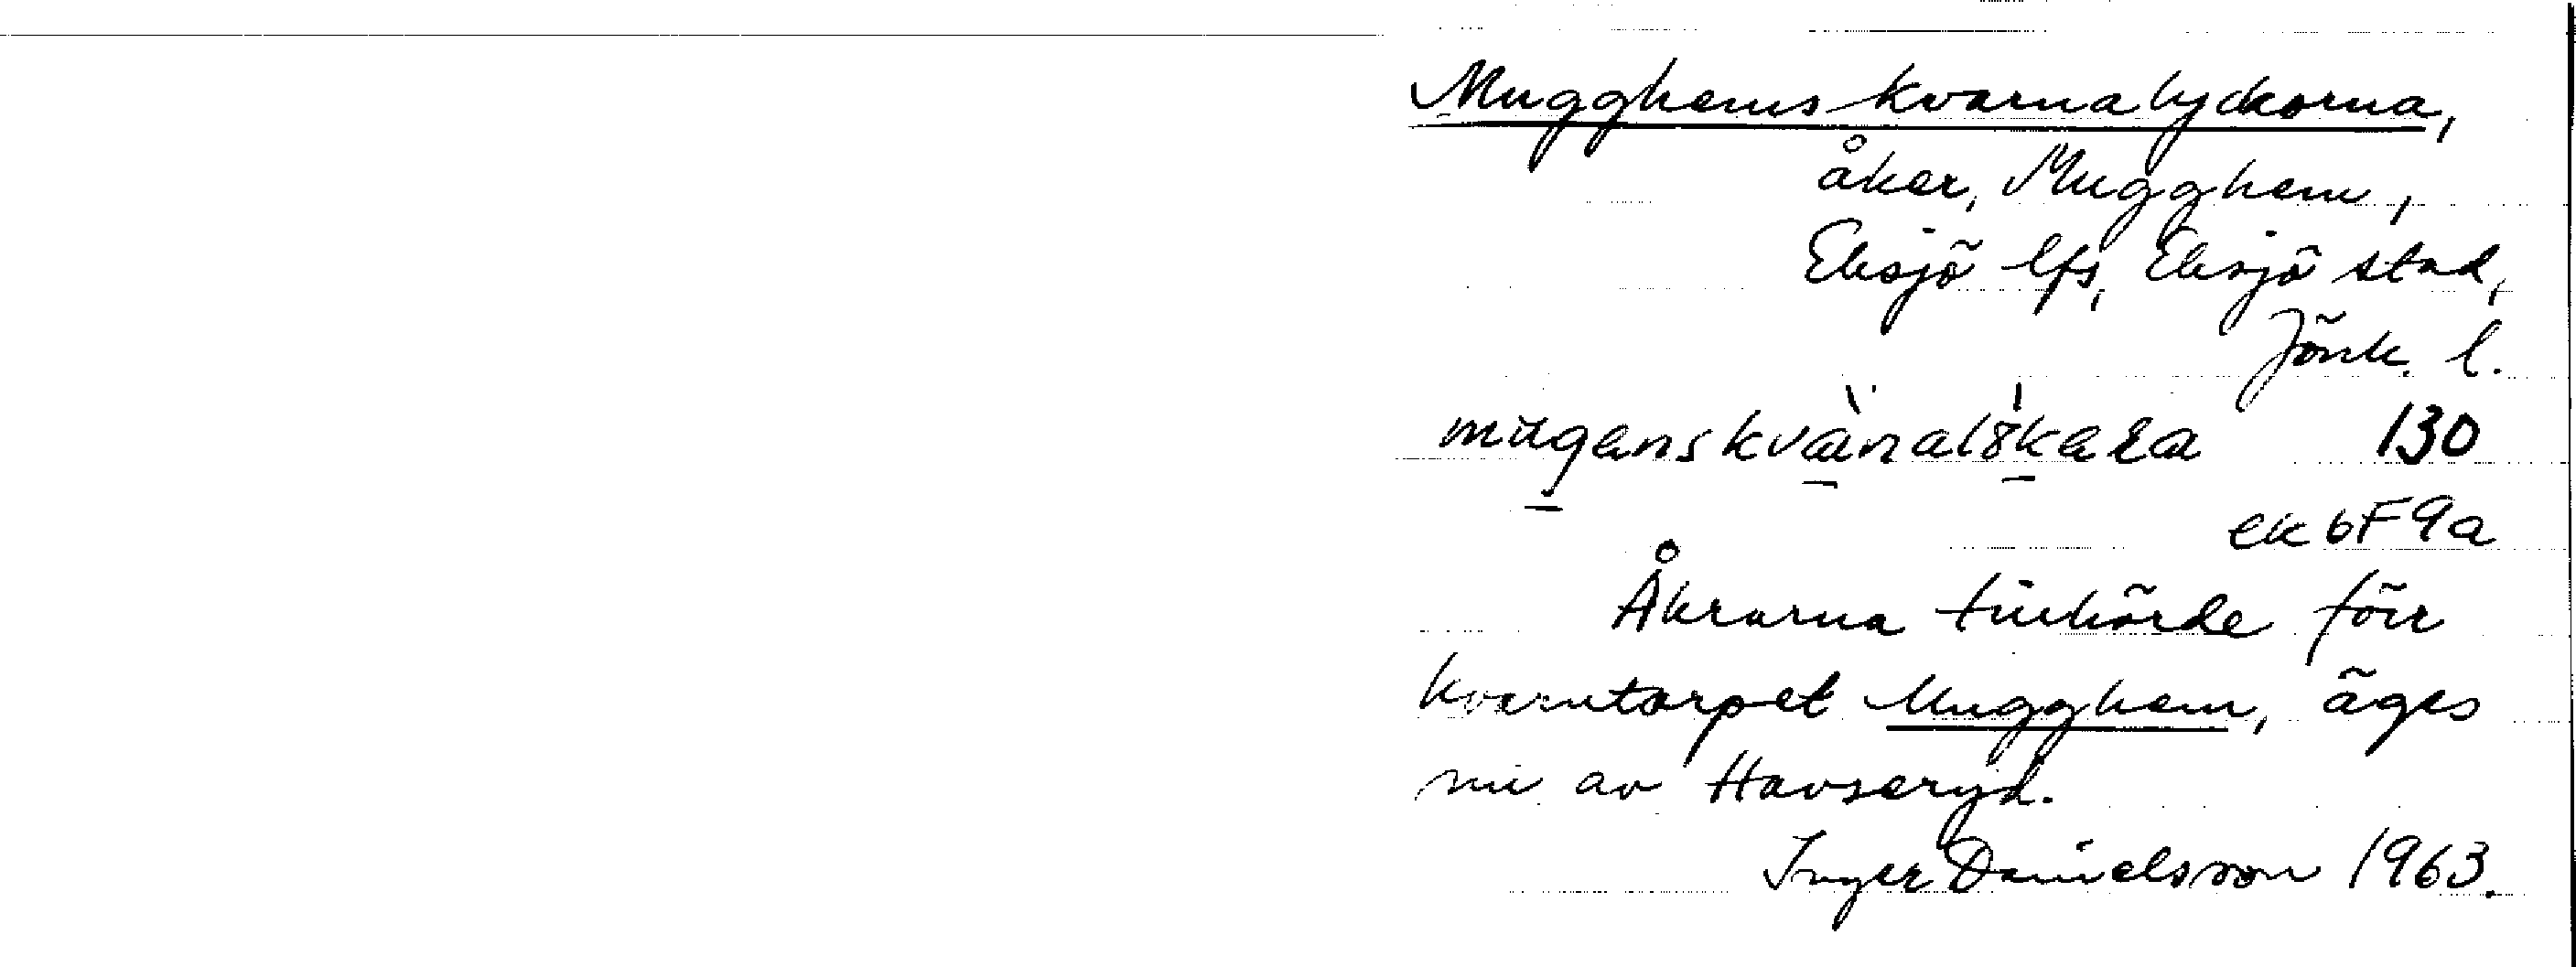 Mugghems kvarnalyckorna,
åker, Mugghem,
Eksjö lfs, Eksjö stad,
Jönk. l.
130
ek 6F9a
Åkrarna tillhörde förr
kvarntorpet Mugghem, äges
nu av Havseryd.
Inger Danielsson 1963.